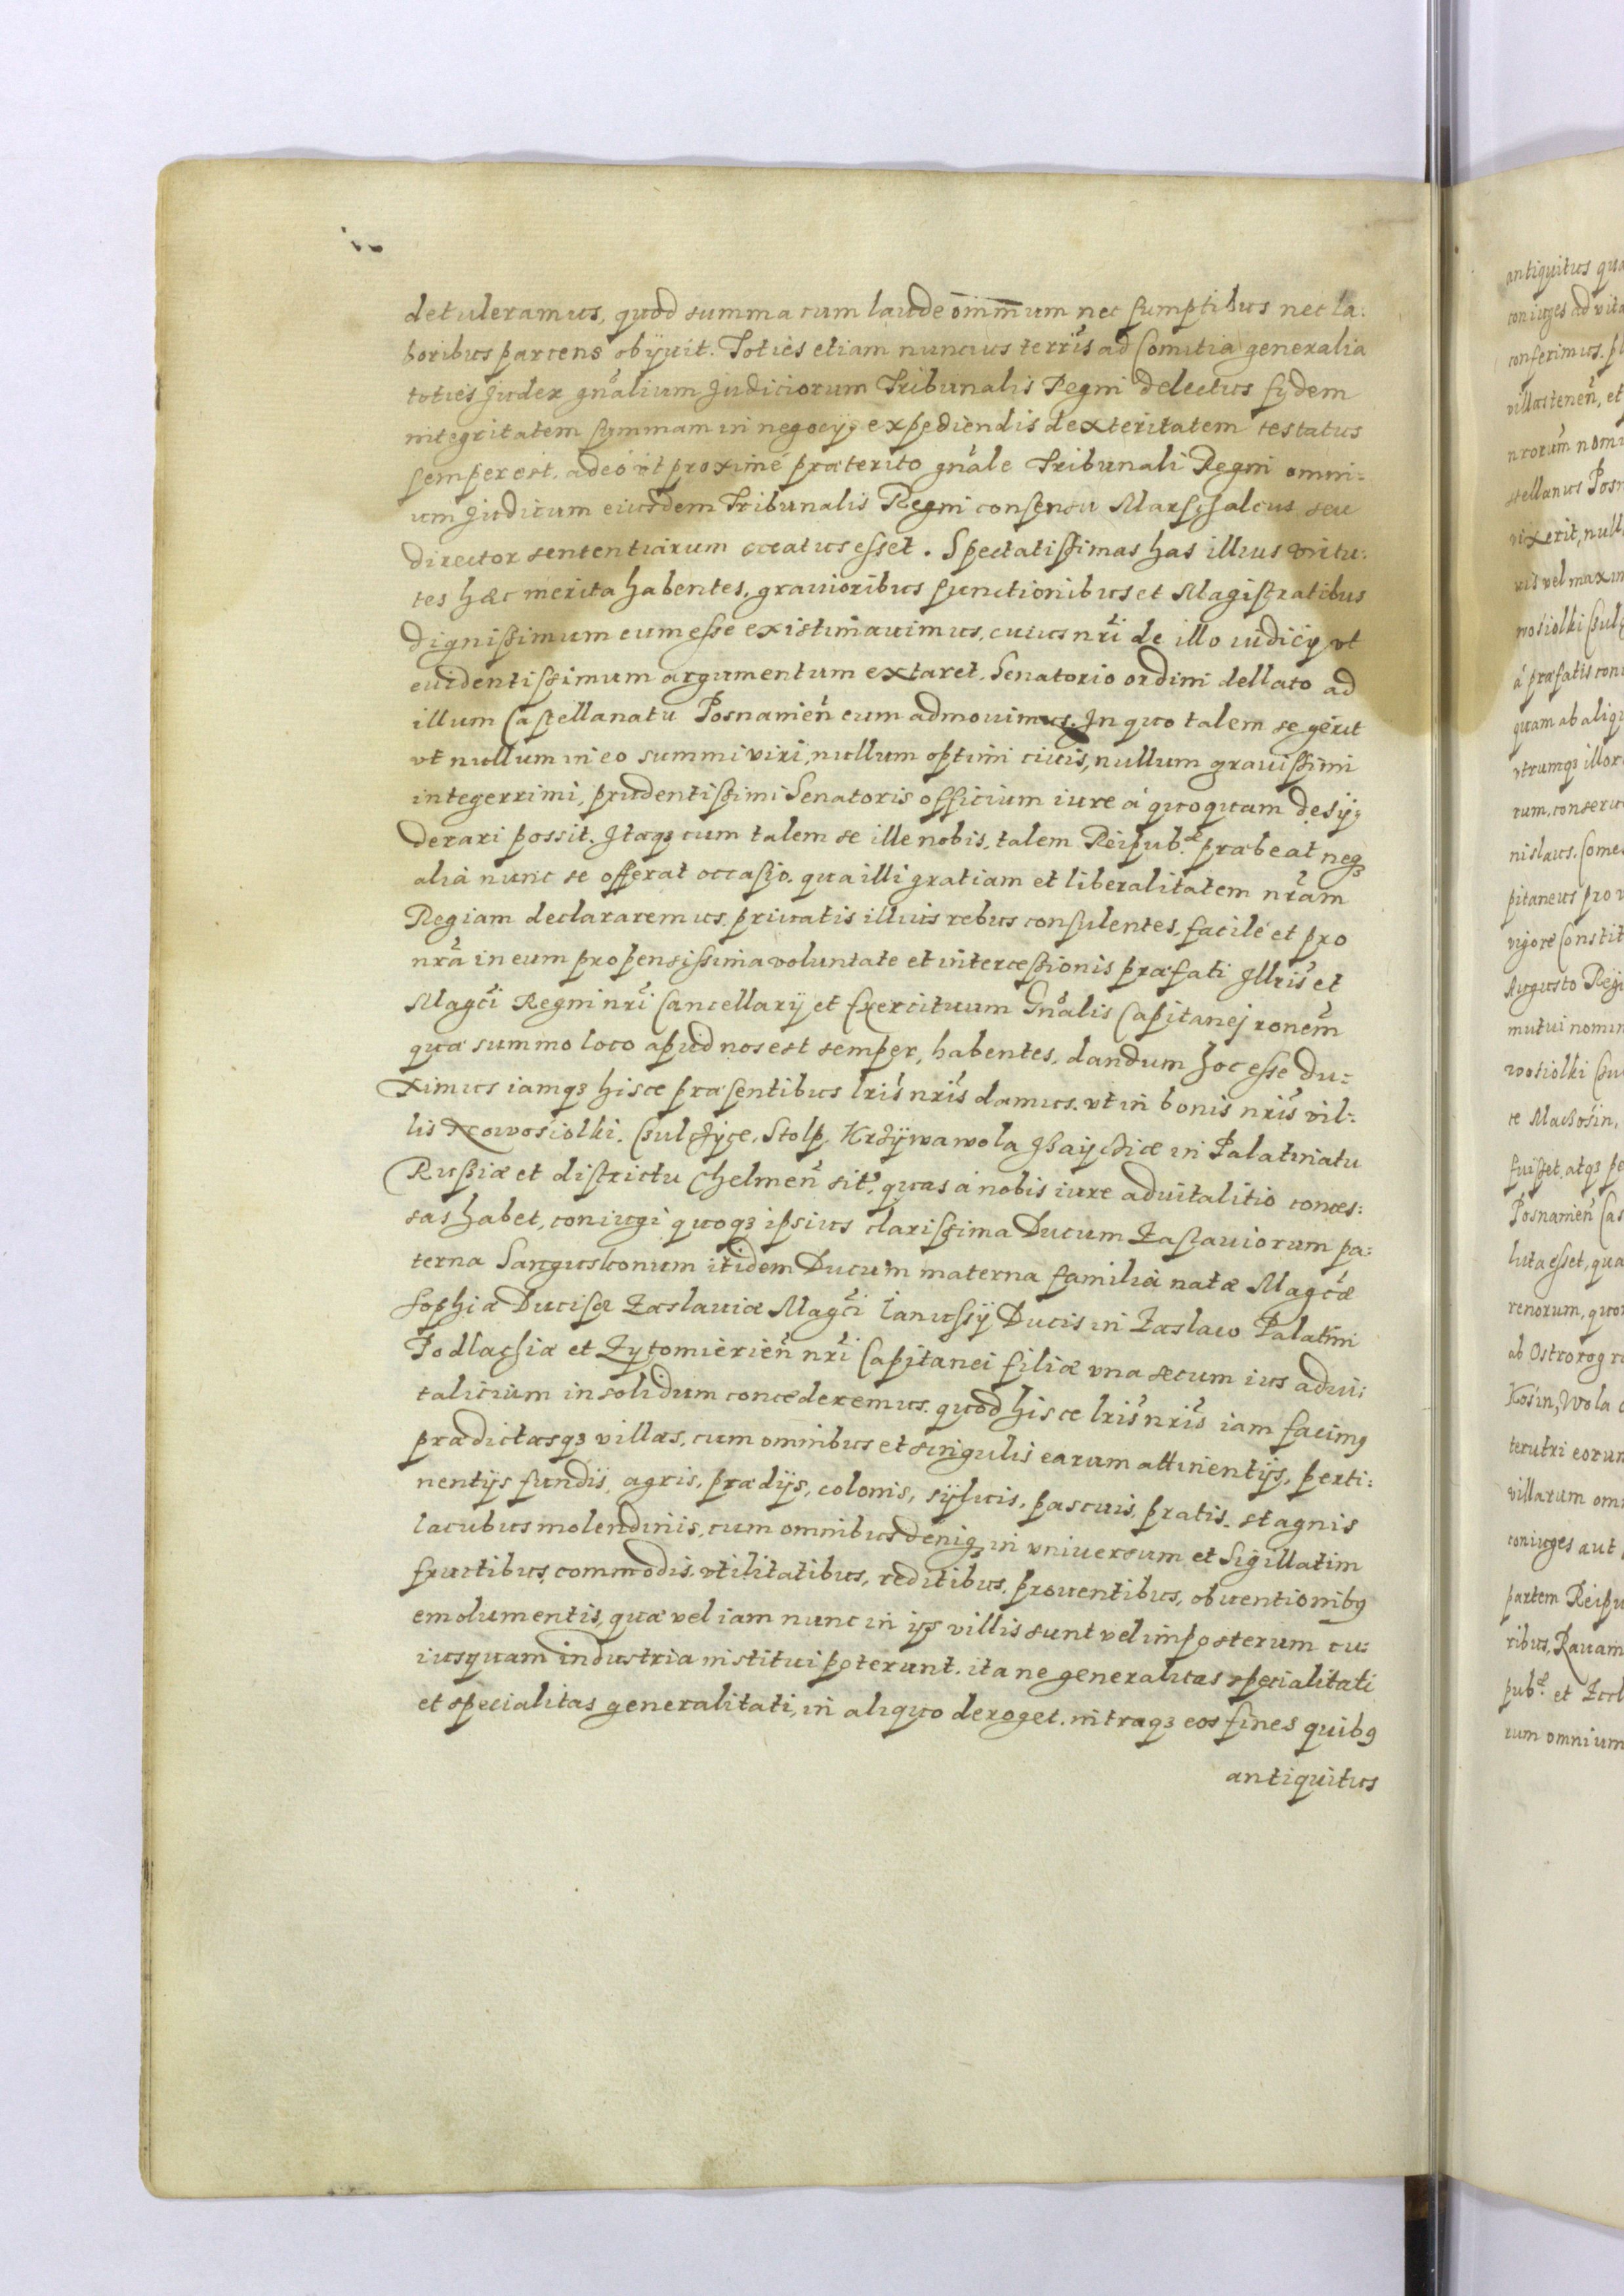 detuleramus, quod summa cum laude om̄m̄um nec sumptibus nec la:
boribus parcens obijuit. Toties etiam nuncius terrīs ad Comitia generalia
toties Judex gn̄alium Judiciorum Tribunalis Regni delectus fydem
integritatem summam in negocijs expediendis dexteritatem testatus
semper est. adeó vt proximé præterito gn̄ale Tribunali Regni omni:
um Judicum eiusdem Tribunalis Regni consensu Marschalcus seu
director sententiarum creatus esset. Spectatissimas has illius virtu:
tes hæc merita habentes, grauioribus functionibus et Magistratibus
dignissimum eum esse existimauimus, cuius nr̄i de illo iudicij vt
euidentissimum argumentum extaret, Senatorio ordini dellato ad
illum Castellanatu Posnanien̄ eum admouimus. In quo talem se gerit
vt nullum in eo summi viri, nullum optimi ciuis, nullum grauissimi
integerrimi, prudentissimi Senatoris officium iure á quoquam desy:
derari possit. Itaqз cum talem se ille nobis, talem Reipub.æ præbeat neqз
alia nunc se offerat occasio. qua illi gratiam et liberalitatem nr̄am
Regiam declararemus, priuatis illius rebus consulentes, facilé et pro
nr̄a in eum propensissima voluntate et intercessionis præfati Illris̄ et
Magc̄i Regni nr̄i Cancellarij et Exercituum Gn̄alis Capitanej ronem̄
quæ summo loco apud nos est semper, habentes, dandum hoc esse du:
ximus iamqз hisce præsentibus lris̄ nris̄ damus. vt in bonis nris̄ vil:
lis Nowosiolki, Czulczyce, Stolp, Krzywawola Ihaÿczice in Palatinatu
Russiæ et districtu Chelmen̄ sit.s quas á nobis iure aduitalitio conces:
sas habet, coniugi quoqз ipsius clarissima Ducum Zaslauiorum pa:
terna Sanguskonum itidem Ducum materna familia natæ Magc̄æ
Sophiæ Ducisæ Zaslauiæ Magc̄i Ianussÿ Ducis in Zaslaw Palatini
Podlachiæ et Zytomierien̄ nr̄i Capitanei filiæ vna secum ius adui:
talicium insolidum concederemus. quod hisce lris̄ nris̄ iam facimꝰ
prædictasqз villas, cum omnibus et singulis earum attinentijs, perti:
nentijs fundis, agris, prædijs, colonis, sÿluis, pascuis, pratis, stagnis
lacubus molendinis, cum omnibus deniqз in vniuersum et Sigillatim
fructibus, commodis, vtilitatibus, reditibus, prouentibus, obuentionibꝰ
emolumentis, quæ vel iam nunc in ijs villis sunt vel imposterum cu:
iusquam industria institui poterunt. ita ne generalitas specialitati
et specialitas generalitati, in aliquo deroget. intraqз eos fines quibꝰ
antiquitus
antiquitus qua
coniuges ad vita
conferimus. p
villas tenen̄, et
nrorum̄ nomi
stellanus Posn
vixerit, null
uis vel maxim
wosiolki Czulc
á præfatis con
quam ab aliqu
vtrumqз illor
rum, conseru
nislaus. Come
pitaneus pro
vigore Constit
Augusto Regi
mutui nomin
wosiolki Czu
ce Machosin,
fuisset, atqз pe
Posnanien̄ Cas
luta esset, qua
renorum, quo
ab Ostrorog
Kosin, Wola
terutri eorum
villarum omn
coniuges aut
partem Reipu
ribus, Rauam
pub.æ et Eccl
rum omnium